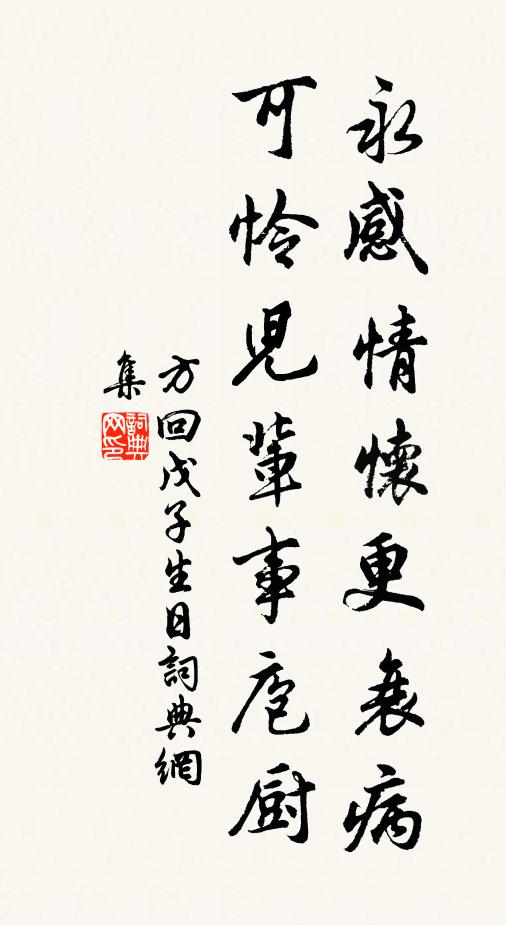 永感情懷更衰病
可怜兒輩事庖厨
方回戊子生日詞典網
集
詞典網印